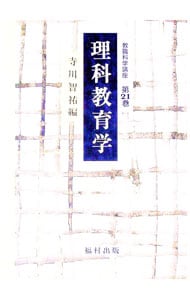 教職科学講座 第21巻
理科教育学
寺川智祐編
福村出版